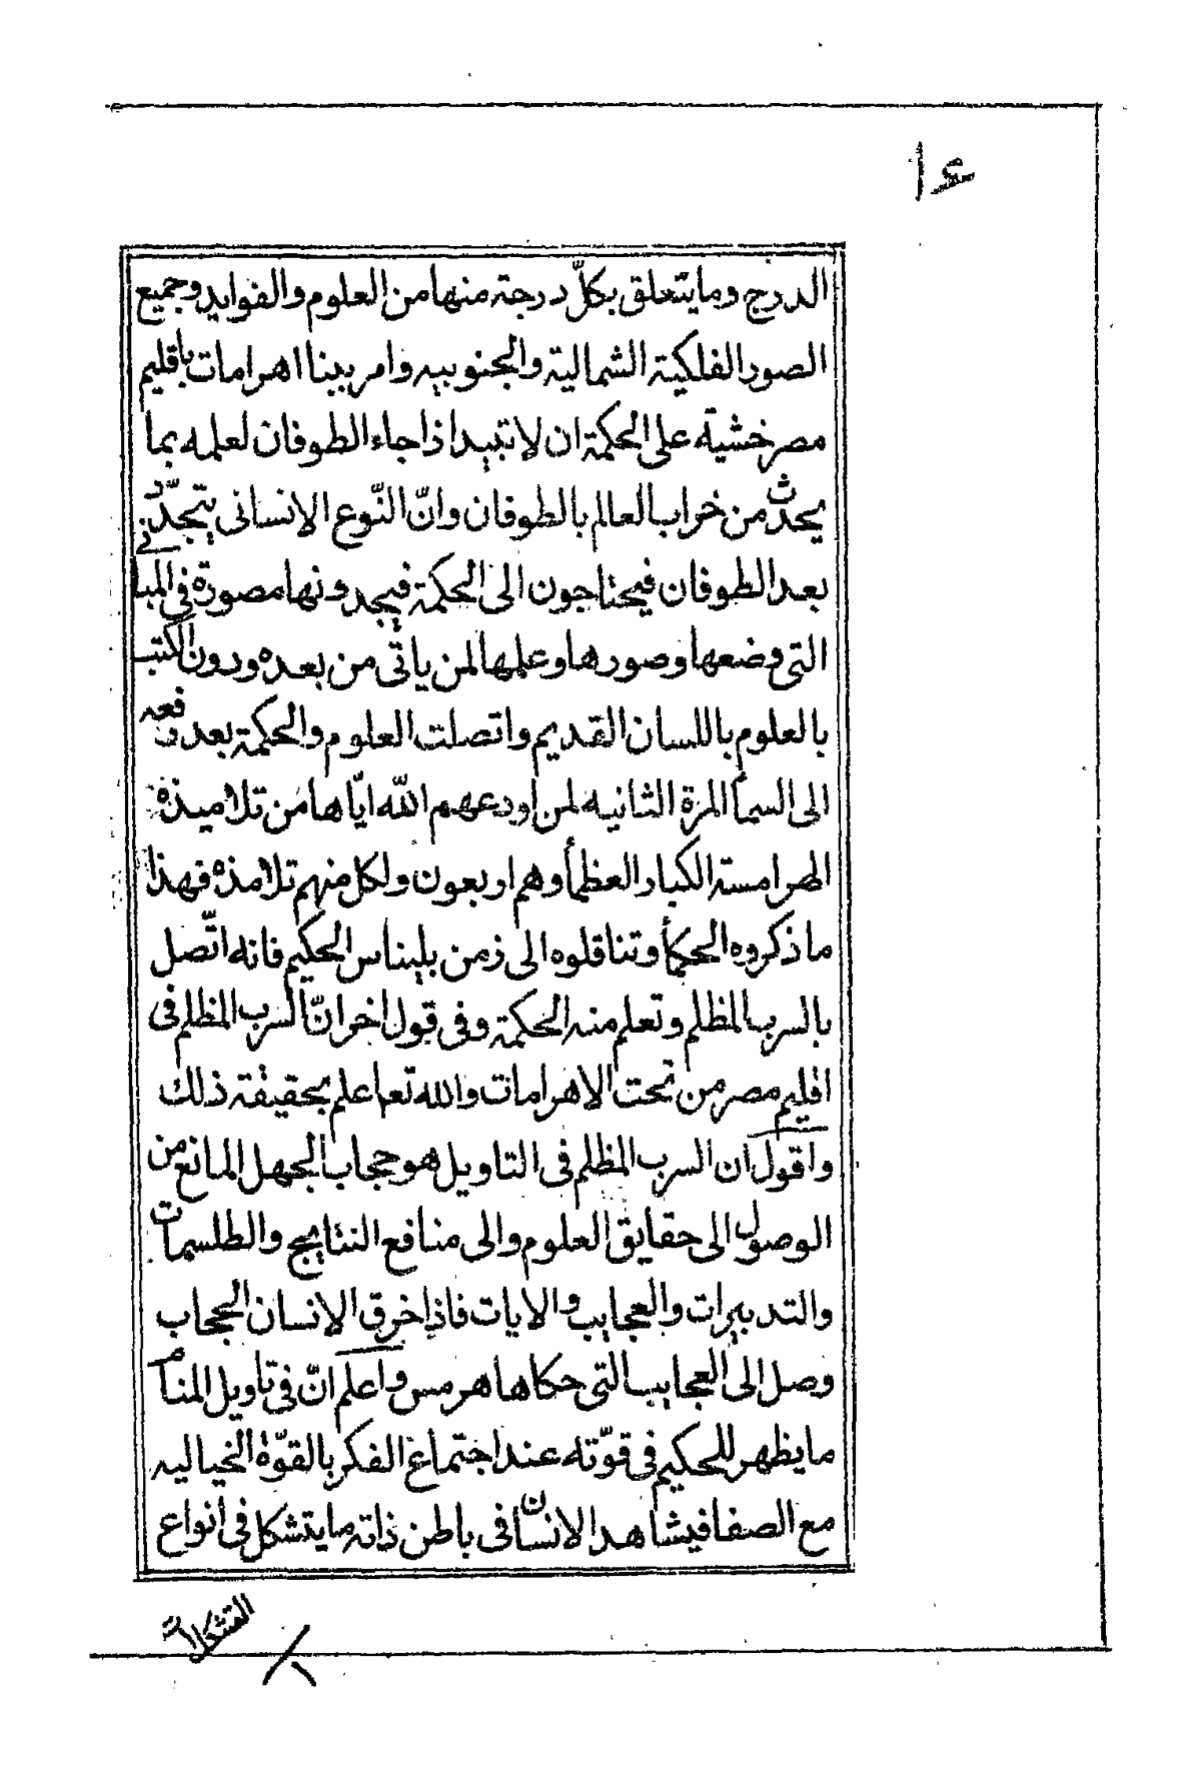 ١٤
الدرج وما يتعلق بكلّ درجة منها من العلوم والفوايد وجميع
الصور الفلكية الشمالية والجنوبيه وامر ببنا اهرامات باقليم
مصر خشية على الحكمة ان لا تبيد اذا جاء الطوفان لعلمه بما
يحدث من خراب العالم بالطوفان وانّ النّوع الانسانى يتجدّد
بعد الطوفان فيحتاجون الى الحكمة فيجدونها مصورة فى المبانى
التى وضعها وصورها وعملها لمن ياتى من بعده ودون الكتب
بالعلوم باللسان القديم واتصلت العلوم والحكمة بعد رفعه
الى السمأ المرة الثانيه لمن اودعهم الله ايّاها من تلاميذه
الهرامسة الكبار العظمأ وهم اربعون ولكل منهم تلامذه فهذا
ما ذكروه الحكمأ وتناقلوه الى زمن بليناس الحكيم فانه اتّصل
بالسرب المظلم وتعلم منه الحكمة وفى قول اخر انّ السرب المظلم فى
اقليم مصر من تحت الاهرامات والله تعا اعلم بحقيقة ذلك
واقول ان السرب المظلم فى التاويل هو حجاب الجهل المانع من
الوصول الى حقايق العلوم والى منافع النتايج والطلسمات
والتدبيرات والعجايب والايات فاذا خرق الانسان الحجاب
وصل الى العجايب التى حكاها هرمس واعلم انّ فى تاويل المنام
ما يظهر للحكيم فى قوّته عند اجتماع الفكر بالقوّة الخياليه
مع الصفا فيشاهد الانسان فى باطن ذاته ما يتشكل فى انواع
التشكلات